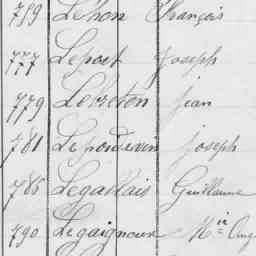 759 Lehon François
777 Lepoet Joseph
779 Lebreton Jean
781 Lepoidevin Joseph
786 Legallais Guillaume
790 Legaigneux M.ie Aug